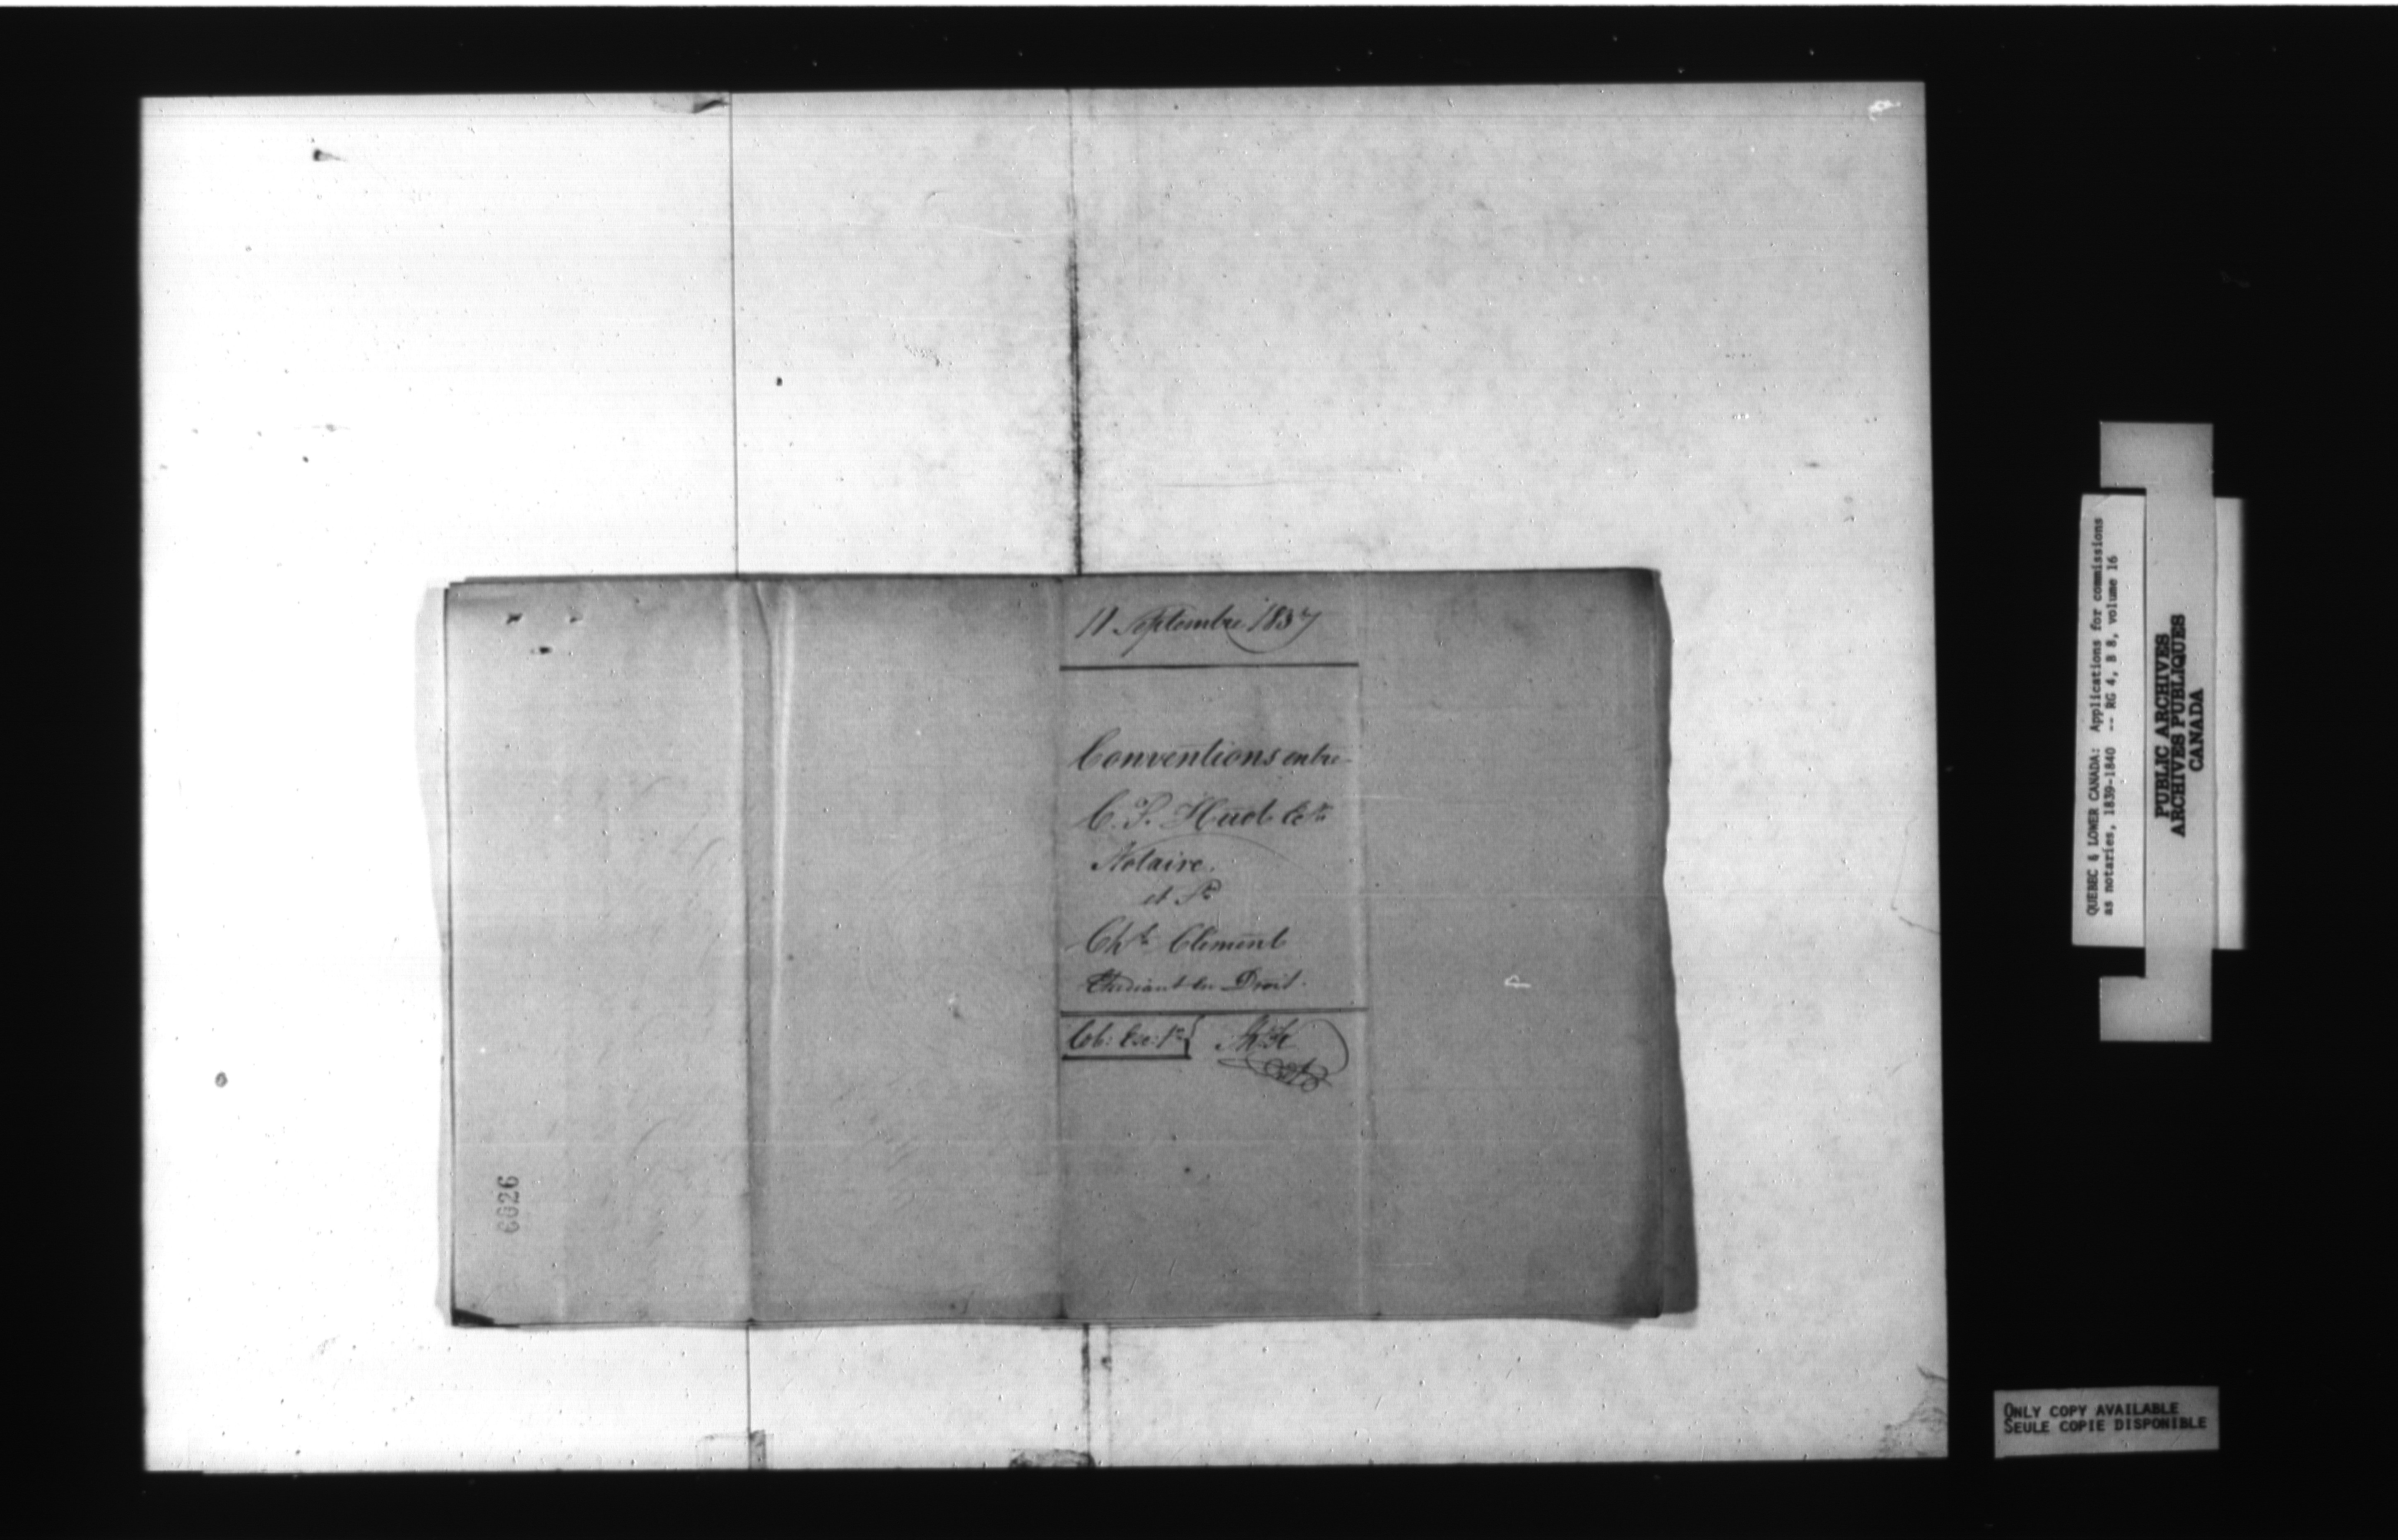 11 Septembre 1837
Conventions entre
C. P. Huot
Notaire.
et Sr
Chs Clément
Etudiant en Droit.
6626
QUEBEC & LOWER CANADA: Applications for commissions
as notaries, 1839-1840 -- RG 4, B 8, volume 16
PUBLIC ARCHIVES
ARCHIVES PUBLIQUES
CANADA
ONLY COPY AVAILABLE
SEULE COPIE DISPONIBLE